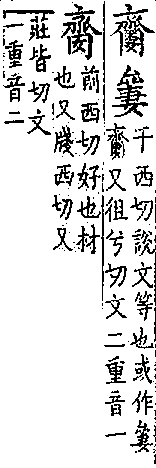 千西切說文等也或作
又徂兮切文二重音一
齌
前西切好也材
也又牋西切又
莊皆切文
一重音二